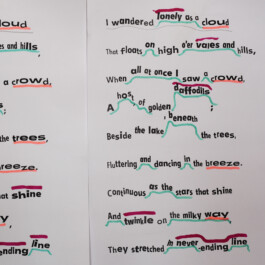 cloud
es and hills,
a crowd,
;
the trees,
breeze.
that shine
y,
ending line
I wandered lonely as a cloud
That floats on high o'er vales and hills,
When all at once I saw a crowd,
A host, of golden daffodils;
Beside the lake, beneath the trees,
Fluttering and dancing in the breeze.
Continuous as the stars that shine
And twinkle on the milky way
They stretched in never-ending line